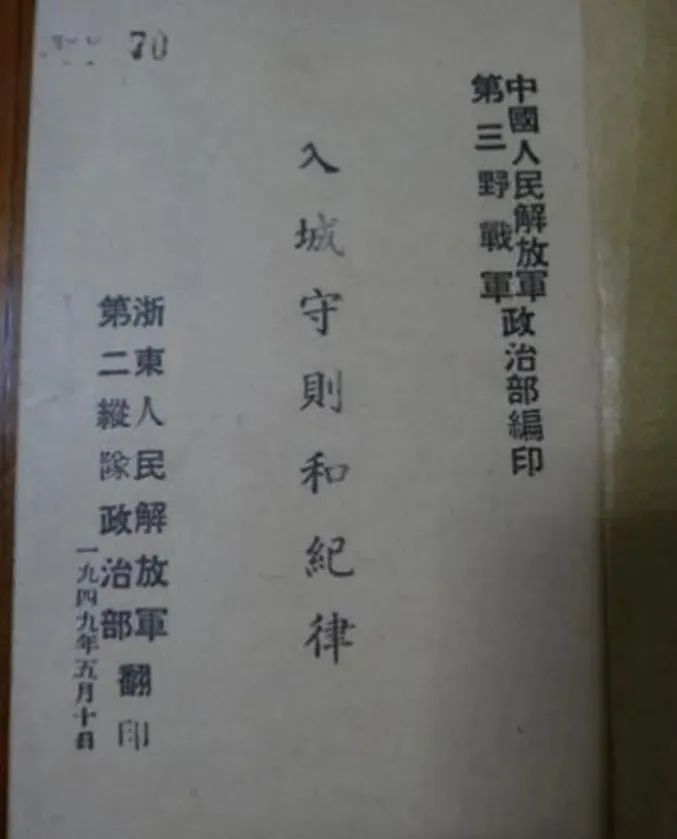 70
中國人民解放軍
第三野戰軍
政治部編印
入城守則和紀律
浙東人民解放軍
第二縱隊政治部
翻印
一九四九年五月十日